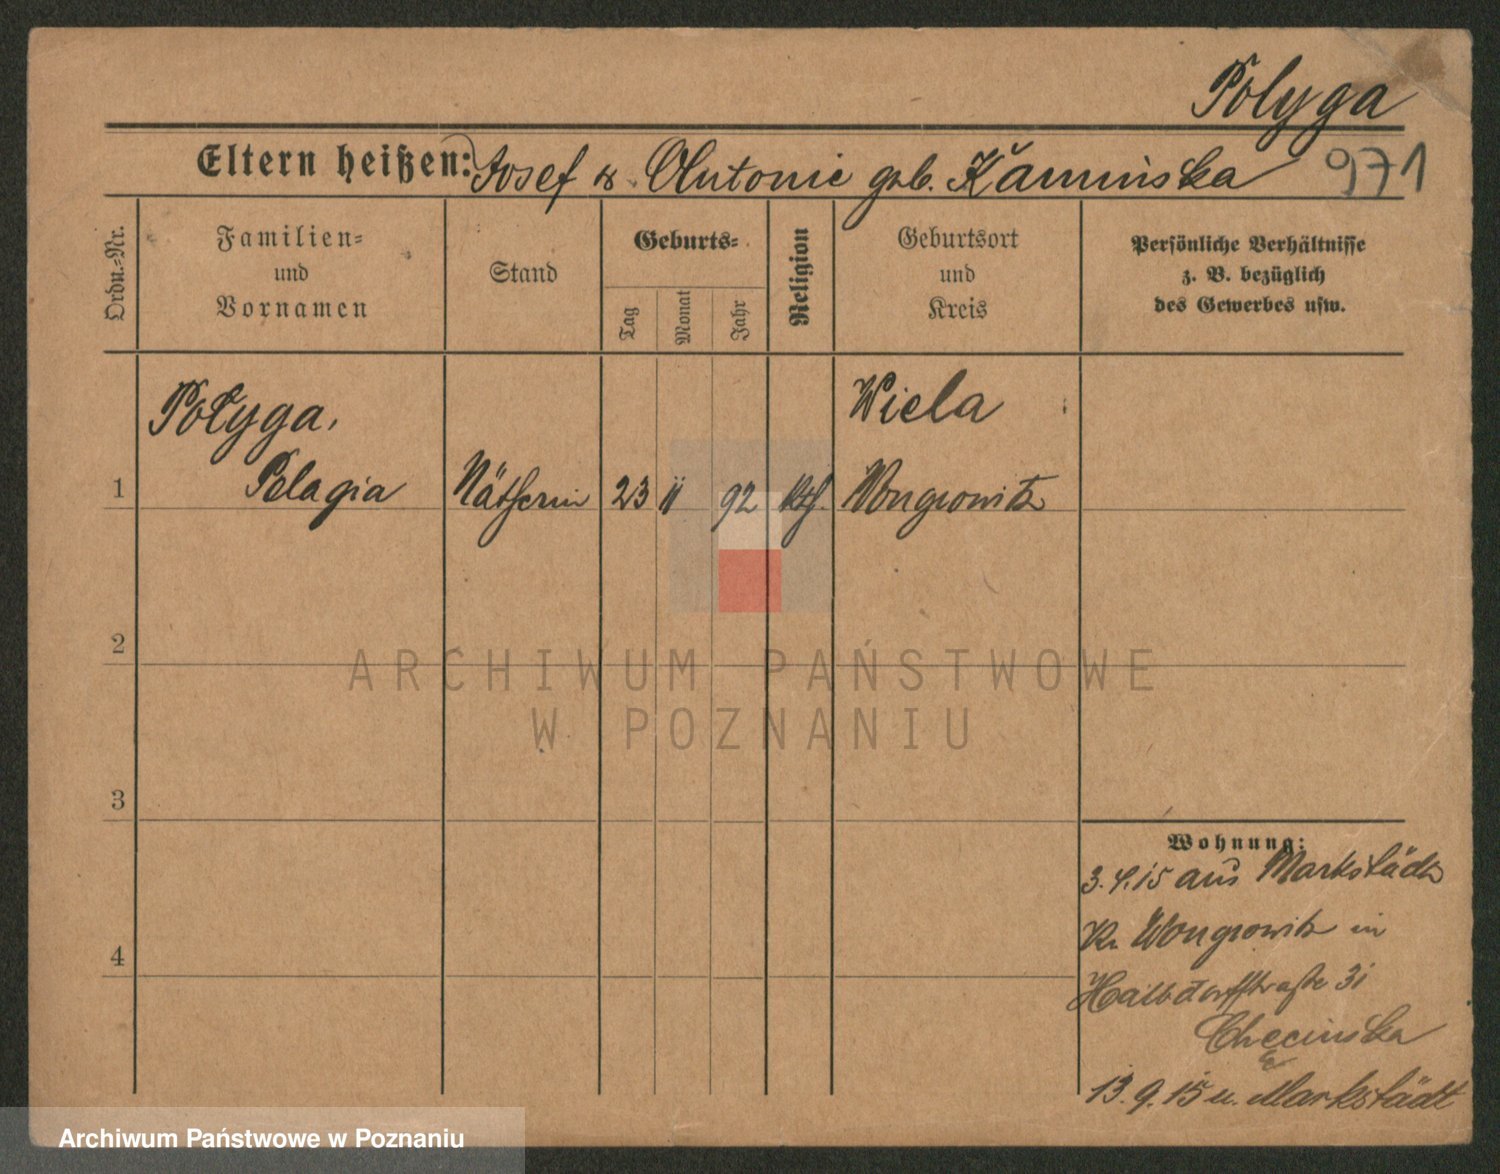 Polyga
Eltern heißen: Josef & Antonie geb. Kaminska
971
Ordn.-Nr.
Familien- und Vornamen
Stand
Geburts-
Tag
Monat
Jahr
Religion
Geburtsort und Kreis
Persönliche Verhältnisse
z. B. bezüglich
des Gewerbes usw.
Polyga,
Wiela
1 Pelagia Näherin 23 11 92 kth. Wongrowitz
2
3
4
Wohnung:
3.4.15 aus Markstädt
Kr Wongrowitz in
Halbdorfstraße 31
Chęcinska
13.9.15 n. Markstädt
ARCHIWUM PAŃSTWOWE
W POZNANIU
Archiwum Państwowe w Poznaniu